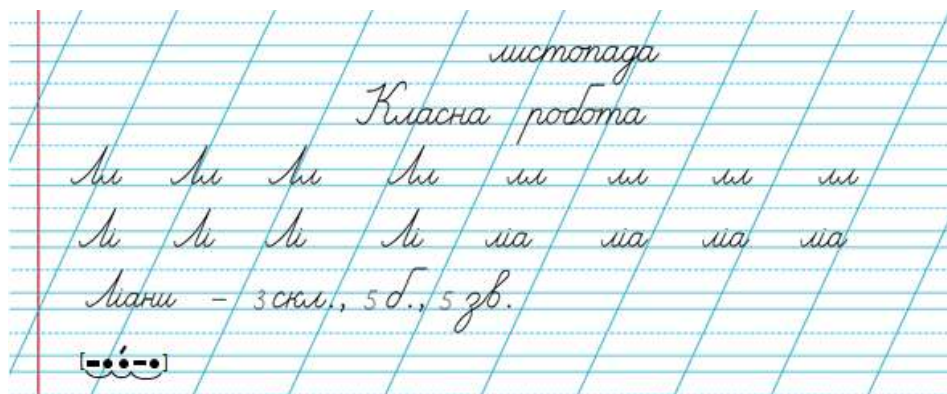 листопада
Класна робота
Лл Лл Лл Лл лл лл лл лл
Лі Лі Лі Лі ліа ліа ліа ліа
Ліани - 3 скл., 5 б., 5 зв.
[–••–•]